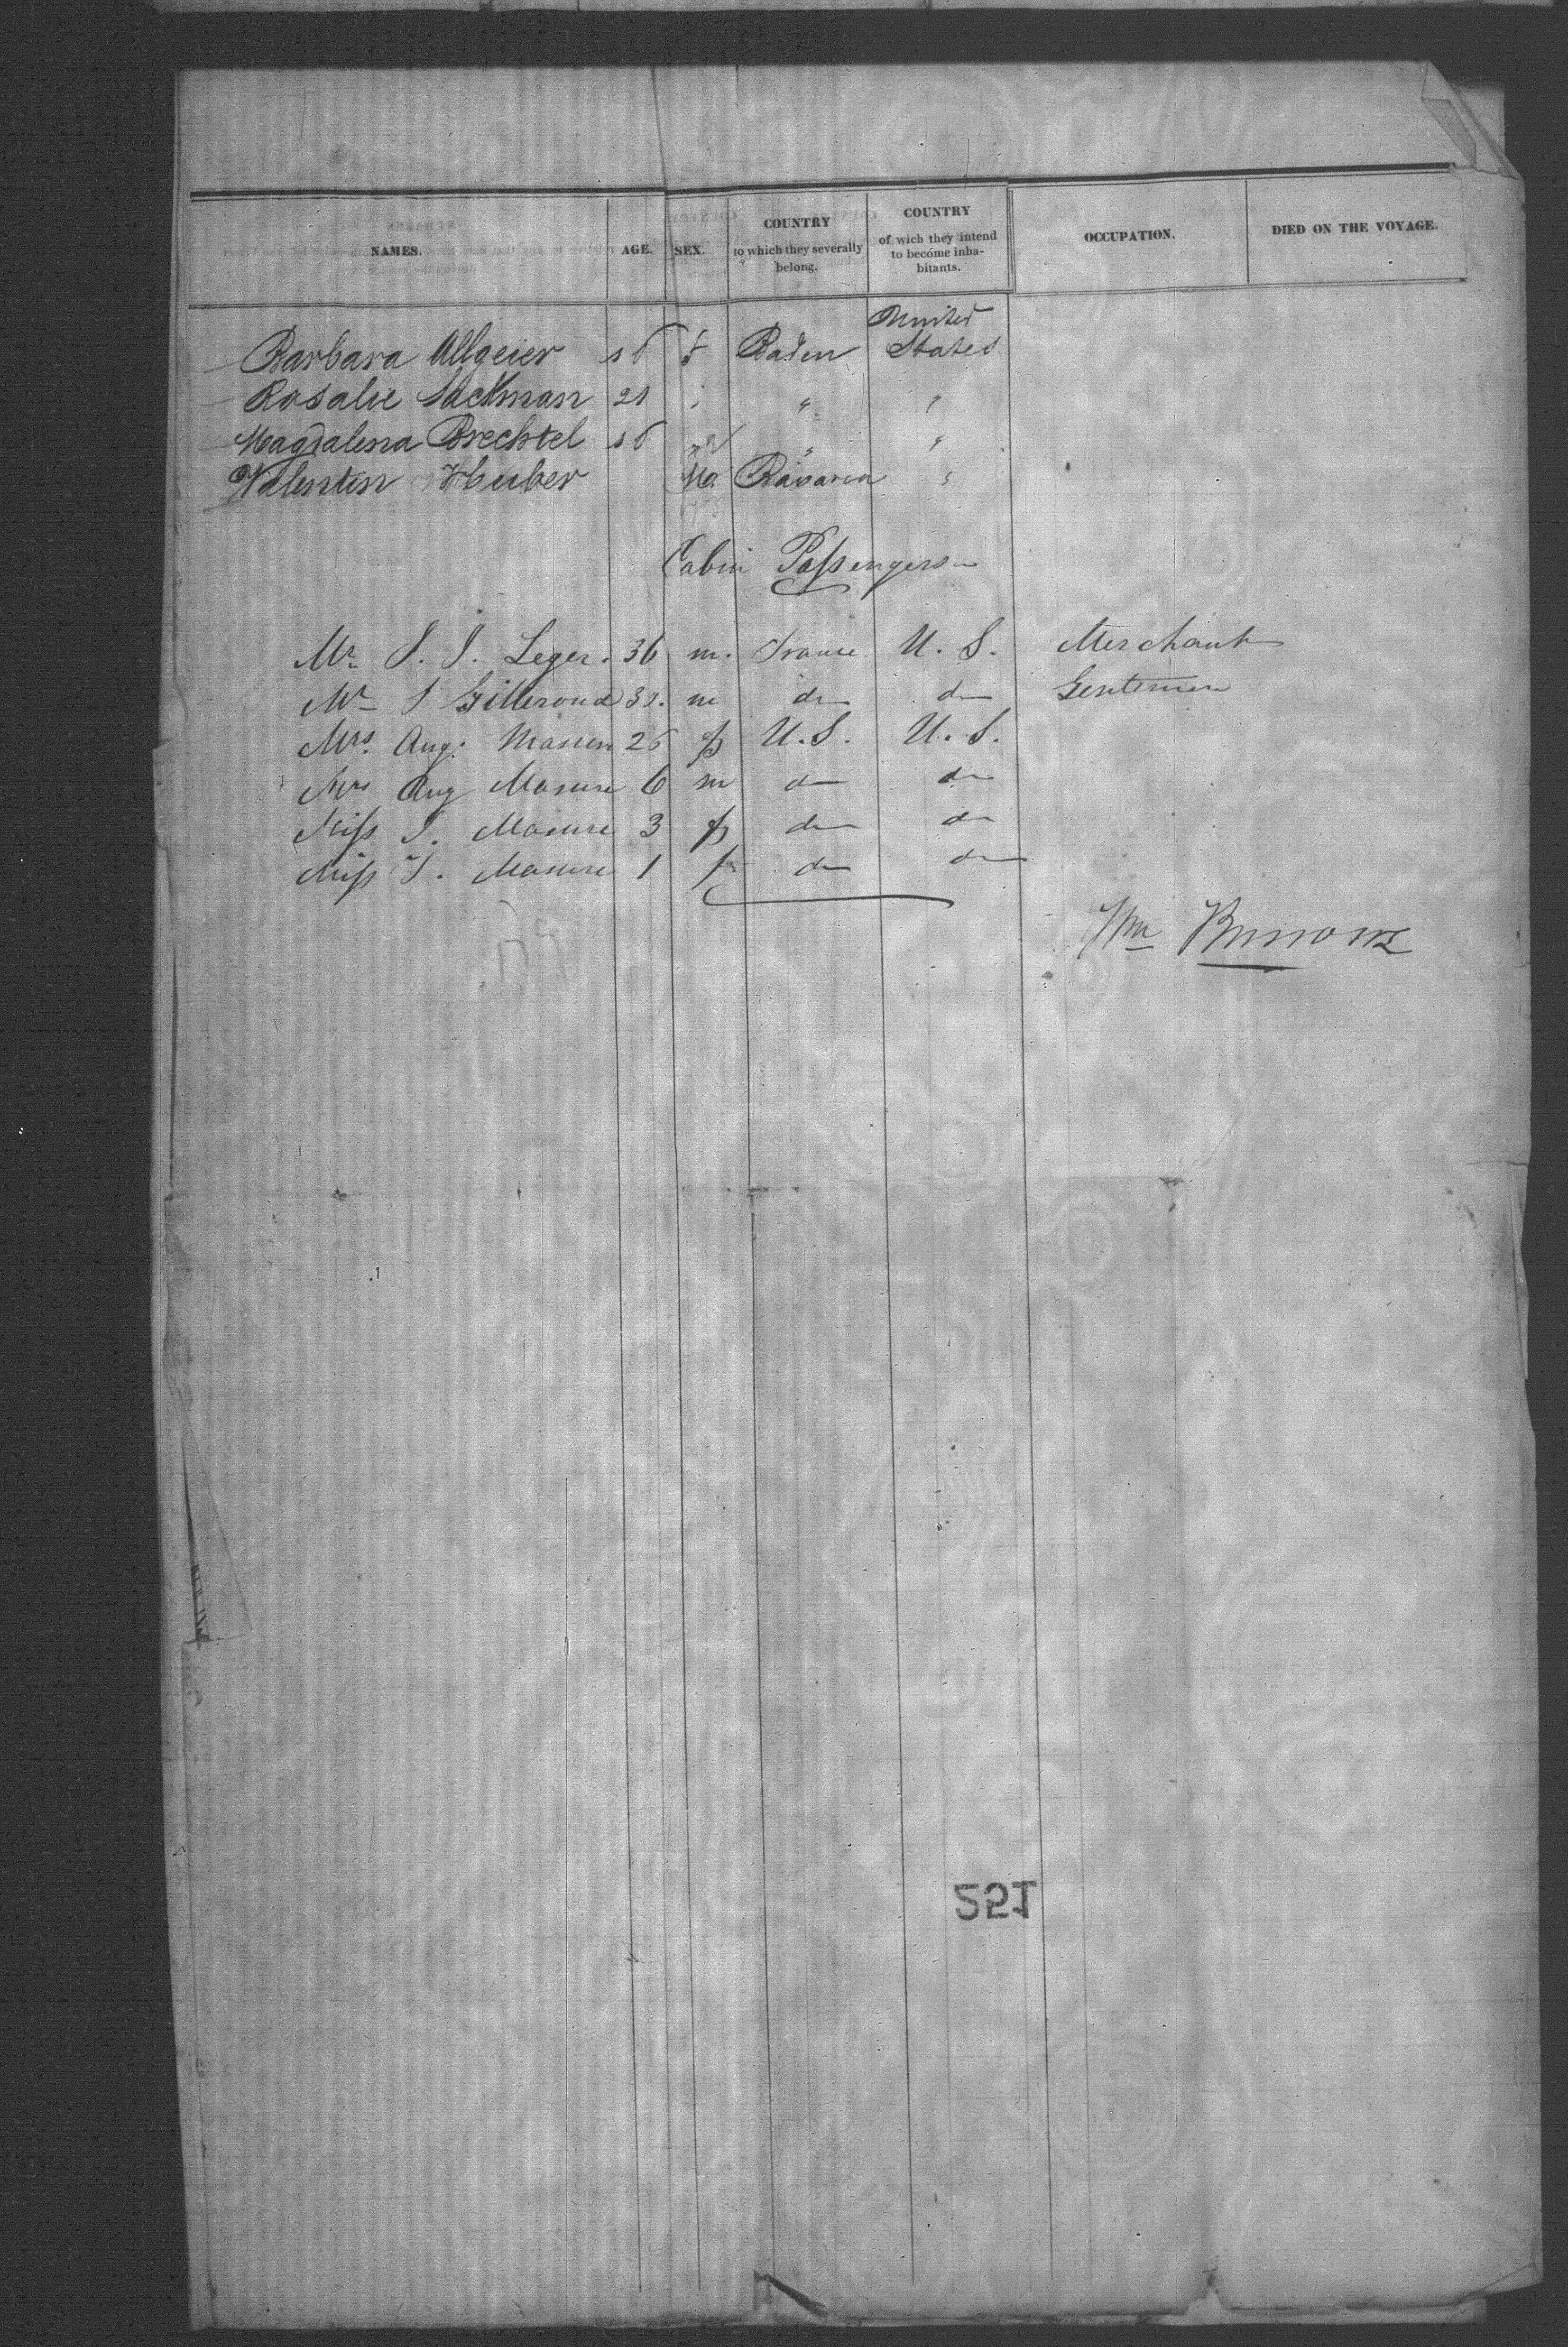 NAMES. AGE. SEX. COUNTRY to which they severally belong. COUNTRY of wich they intend to become inhabitants. OCCUPATION. DIED ON THE VOYAGE.
United
Barbara Allgeier f Baden States
Rosalie Sackman 21 " " "
Magdalena Brechtel " "
Valentin Huber Bavaria "
Cabin Passengers
Mr. S. J. Leger. 36 m. France U. S. Merchant
Mr m do do Gentemen
Mrs. Aug. 26 f U. S. U. S.
Aug Masure 6 m do do
Miss J. Masure 3 f do do
Miss Masure 1 f do do
Wm
251